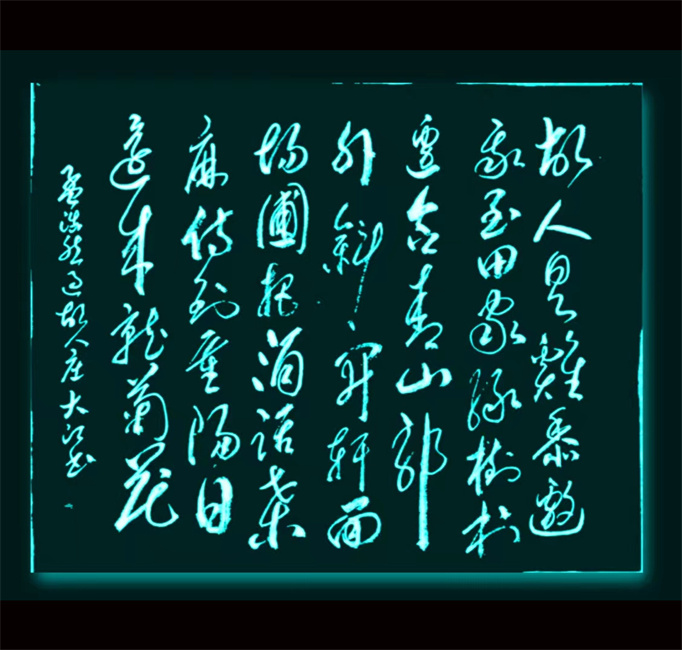 故人具雞黍邀
我至田家綠樹村
邊合青山郭
外斜開軒面
場圃把酒話桑
麻待到重陽日
還來就菊花
孟浩然過故人庄 大江书